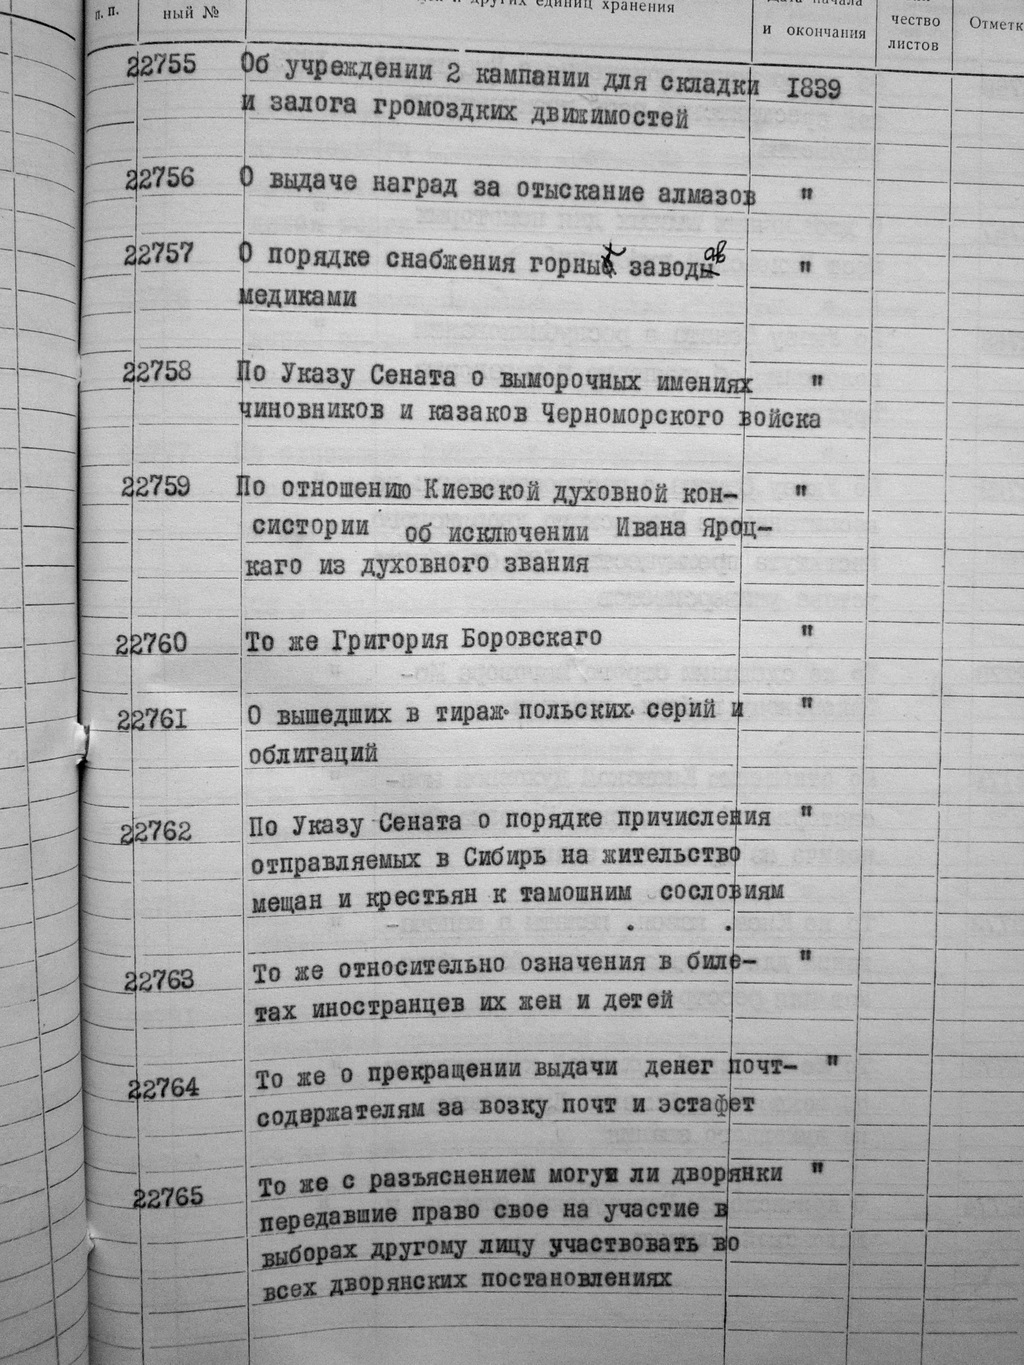 п. п.
ный №
и других единиц хранения
Дата начала
и окончания
чество
листов
Отметк
22755 Об учреждении 2 кампании для складки 1839
и залога громоздких движимостей
22756 О выдаче наград за отыскание алмазов "
22757 О порядке снабжения горных заводов "
медиками
22758 По Указу Сената о выморочных имениях "
чиновников и казаков Черноморского войска
22759 По отношению Киевской духовной кон- "
систории об исключении Ивана Яроц-
каго из духовного звания
22760 То же Григория Боровскаго "
22761 О вышедших в тираж польских серий и "
облигаций
22762 По Указу Сената о порядке причисления "
отправляемых в Сибирь на жительство
мещан и крестьян к тамошним сословиям
22763 То же относительно означения в биле- "
тах иностранцев их жен и детей
22764 То же о прекращении выдачи денег почт- "
содержателям за возку почт и эстафет
22765 То же с разъяснением могут ли дворянки "
передавшие право свое на участие в
выборах другому лицу участвовать во
всех дворянских постановлениях